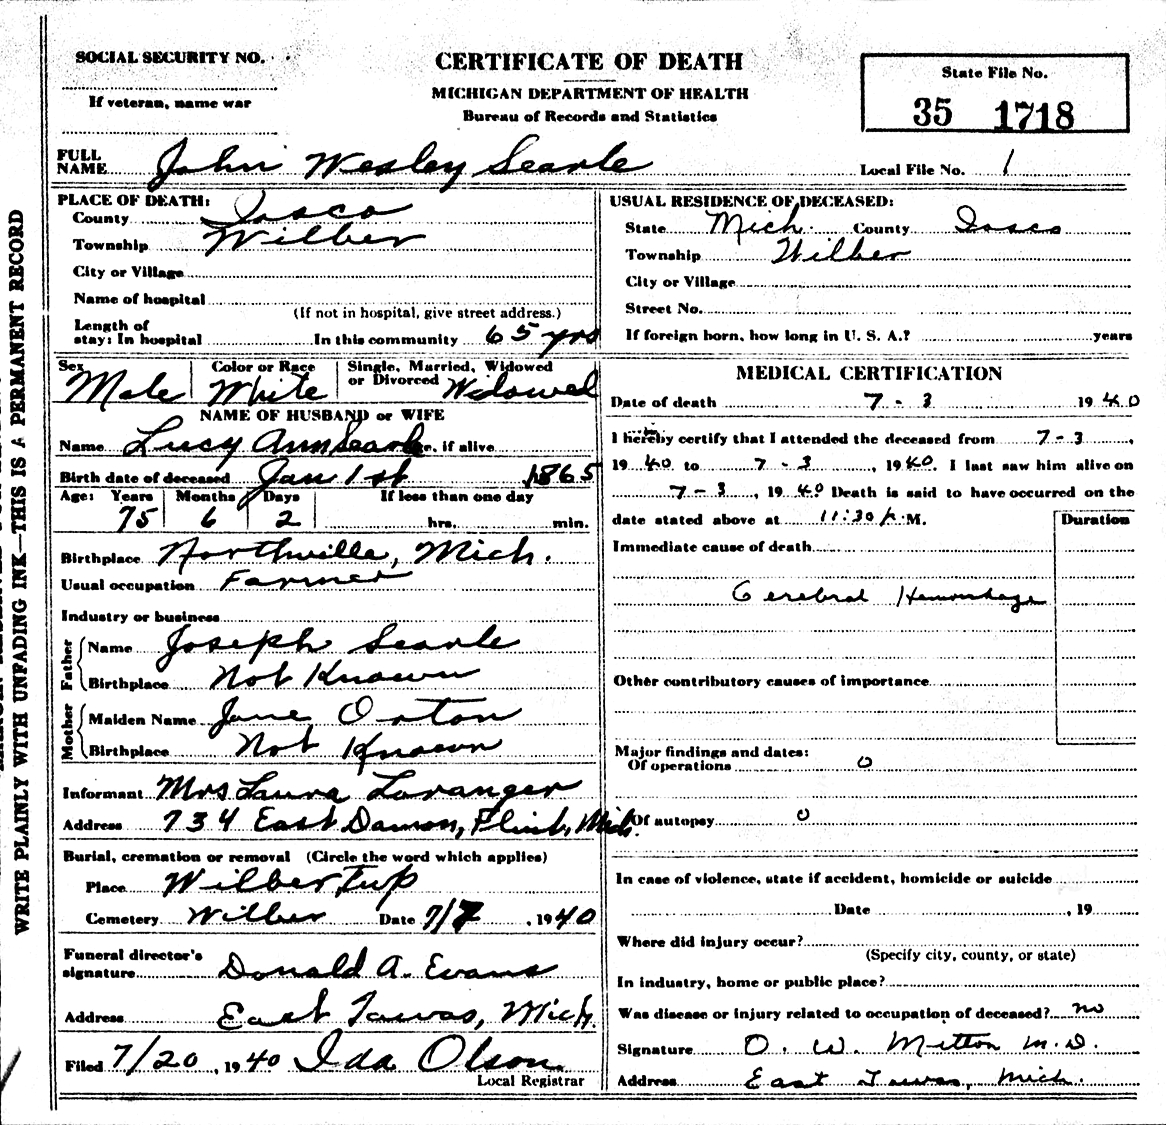 SOCIAL SECURITY NO.
CERTIFICATE OF DEATH
State File No.
If veteran, name war
MICHIGAN DEPARTMENT OF HEALTH
Bureau of Records and Statistics
35 1718
FULL NAME John Wesley Searle
Local File No. 1
PLACE OF DEATH:
County Iosco
Township Wilber
City or Village
Name of hospital
(If not in hospital, give street address.)
Length of stay: In hospital In this community 65 yrs
USUAL RESIDENCE OF DECEASED:
State Mich. County Iosco
Township Wilber
City or Village
Street No.
If foreign born, how long in U. S. A.? years
Sex Male Color or Race White Single, Married, Widowed or Divorced Widowed
NAME OF HUSBAND or WIFE
Name Lucy Ann Searle, if alive
Birth date of deceased Jan 1st 1865
Age: Years 75 Months 6 Days 2 If less than one day hrs. min.
Birthplace Northville, Mich.
Usual occupation Farmer
Industry or business
Father
Name Joseph Searle
Birthplace Not Known
Mother
Maiden Name Jane Orton
Birthplace Not Known
Informant Mrs Laura Loranger
Address 734 East Damon, Flint, Mich.
Burial, cremation or removal (Circle the word which applies)
Place Wilber Twp
Cemetery Wilber Date 7/7, 1940
Funeral director's signature Donald A. Evans
Address East Tawas, Mich.
Filed 7/20, 1940 Ida Olson
Local Registrar
MEDICAL CERTIFICATION
Date of death 7-3 1940
I hereby certify that I attended the deceased from 7-3,
1940 to 7-3, 1940. I last saw him alive on
7-3, 1940 Death is said to have occurred on the
date stated above at 11:30 p.M.
Duration
Immediate cause of death
Cerebral Hemorrhage
Other contributory causes of importance
Major findings and dates:
Of operations 0
Of autopsy 0
In case of violence, state if accident, homicide or suicide
Date, 19
Where did injury occur?
(Specify city, county, or state)
In industry, home or public place?
Was disease or injury related to occupation of deceased? no
Signature O. W. Mitton M.D.
Address East Tawas, Mich.
WRITE PLAINLY WITH UNFADING INK—THIS IS A PERMANENT RECORD